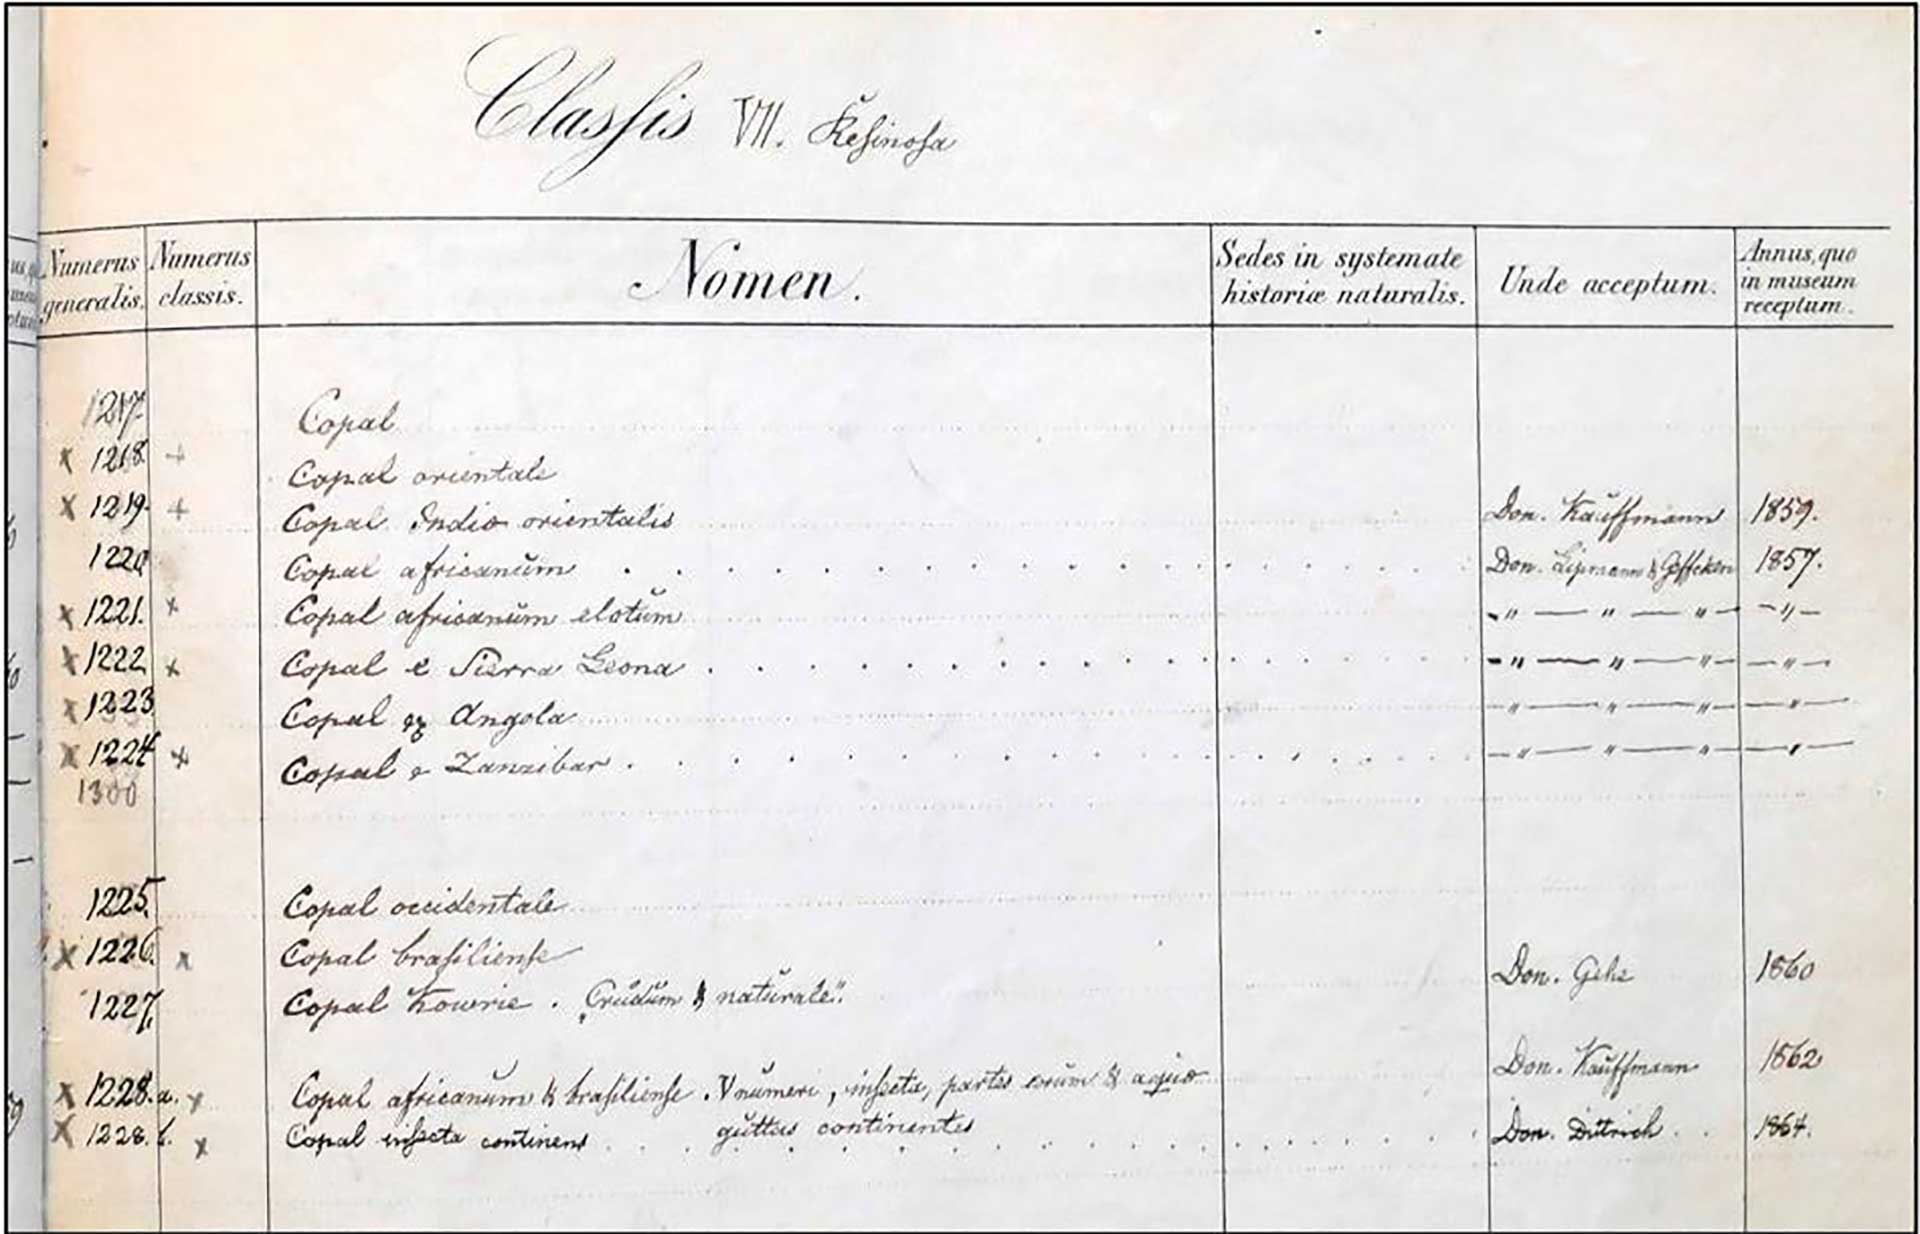 Classis VII. Resinosa
Numerus generalis. Numerus classis. Nomen. Sedes in systemate historiæ naturalis. Unde acceptum. Annus, quo in museum receptum.
1217. Copal
x 1218. + Copal orientale
x 1219. + Copal Indiæ orientalis Don. Kauffmann 1859.
1220 Copal africanum . . . . . Don. Lipmann & Geffcken 1857.
x 1221. x Copal africanum elotum -"- " - "- -"-
x 1222 x Copal e Sierra Leona . . . . . -"- " - "- -"-
x 1223 Copal ex Angola -"- " - "- -"-
x 1224 x Copal e Zanzibar . . . . . -"- " - "- -"-
1300
1225. Copal occidentale
x 1226. x Copal brasiliense Don. Gehe 1860
1227. Copal Kowrie . „Crudum & naturale".
x 1228. a. x Copal africanum & brasiliense . V numeri, insecta, partes eorum & aquæ Don. Kauffmann 1862
guttas continentes
x 1228. b. x Copal insecta continens . . . . . Don. Dittrich . . 1864.